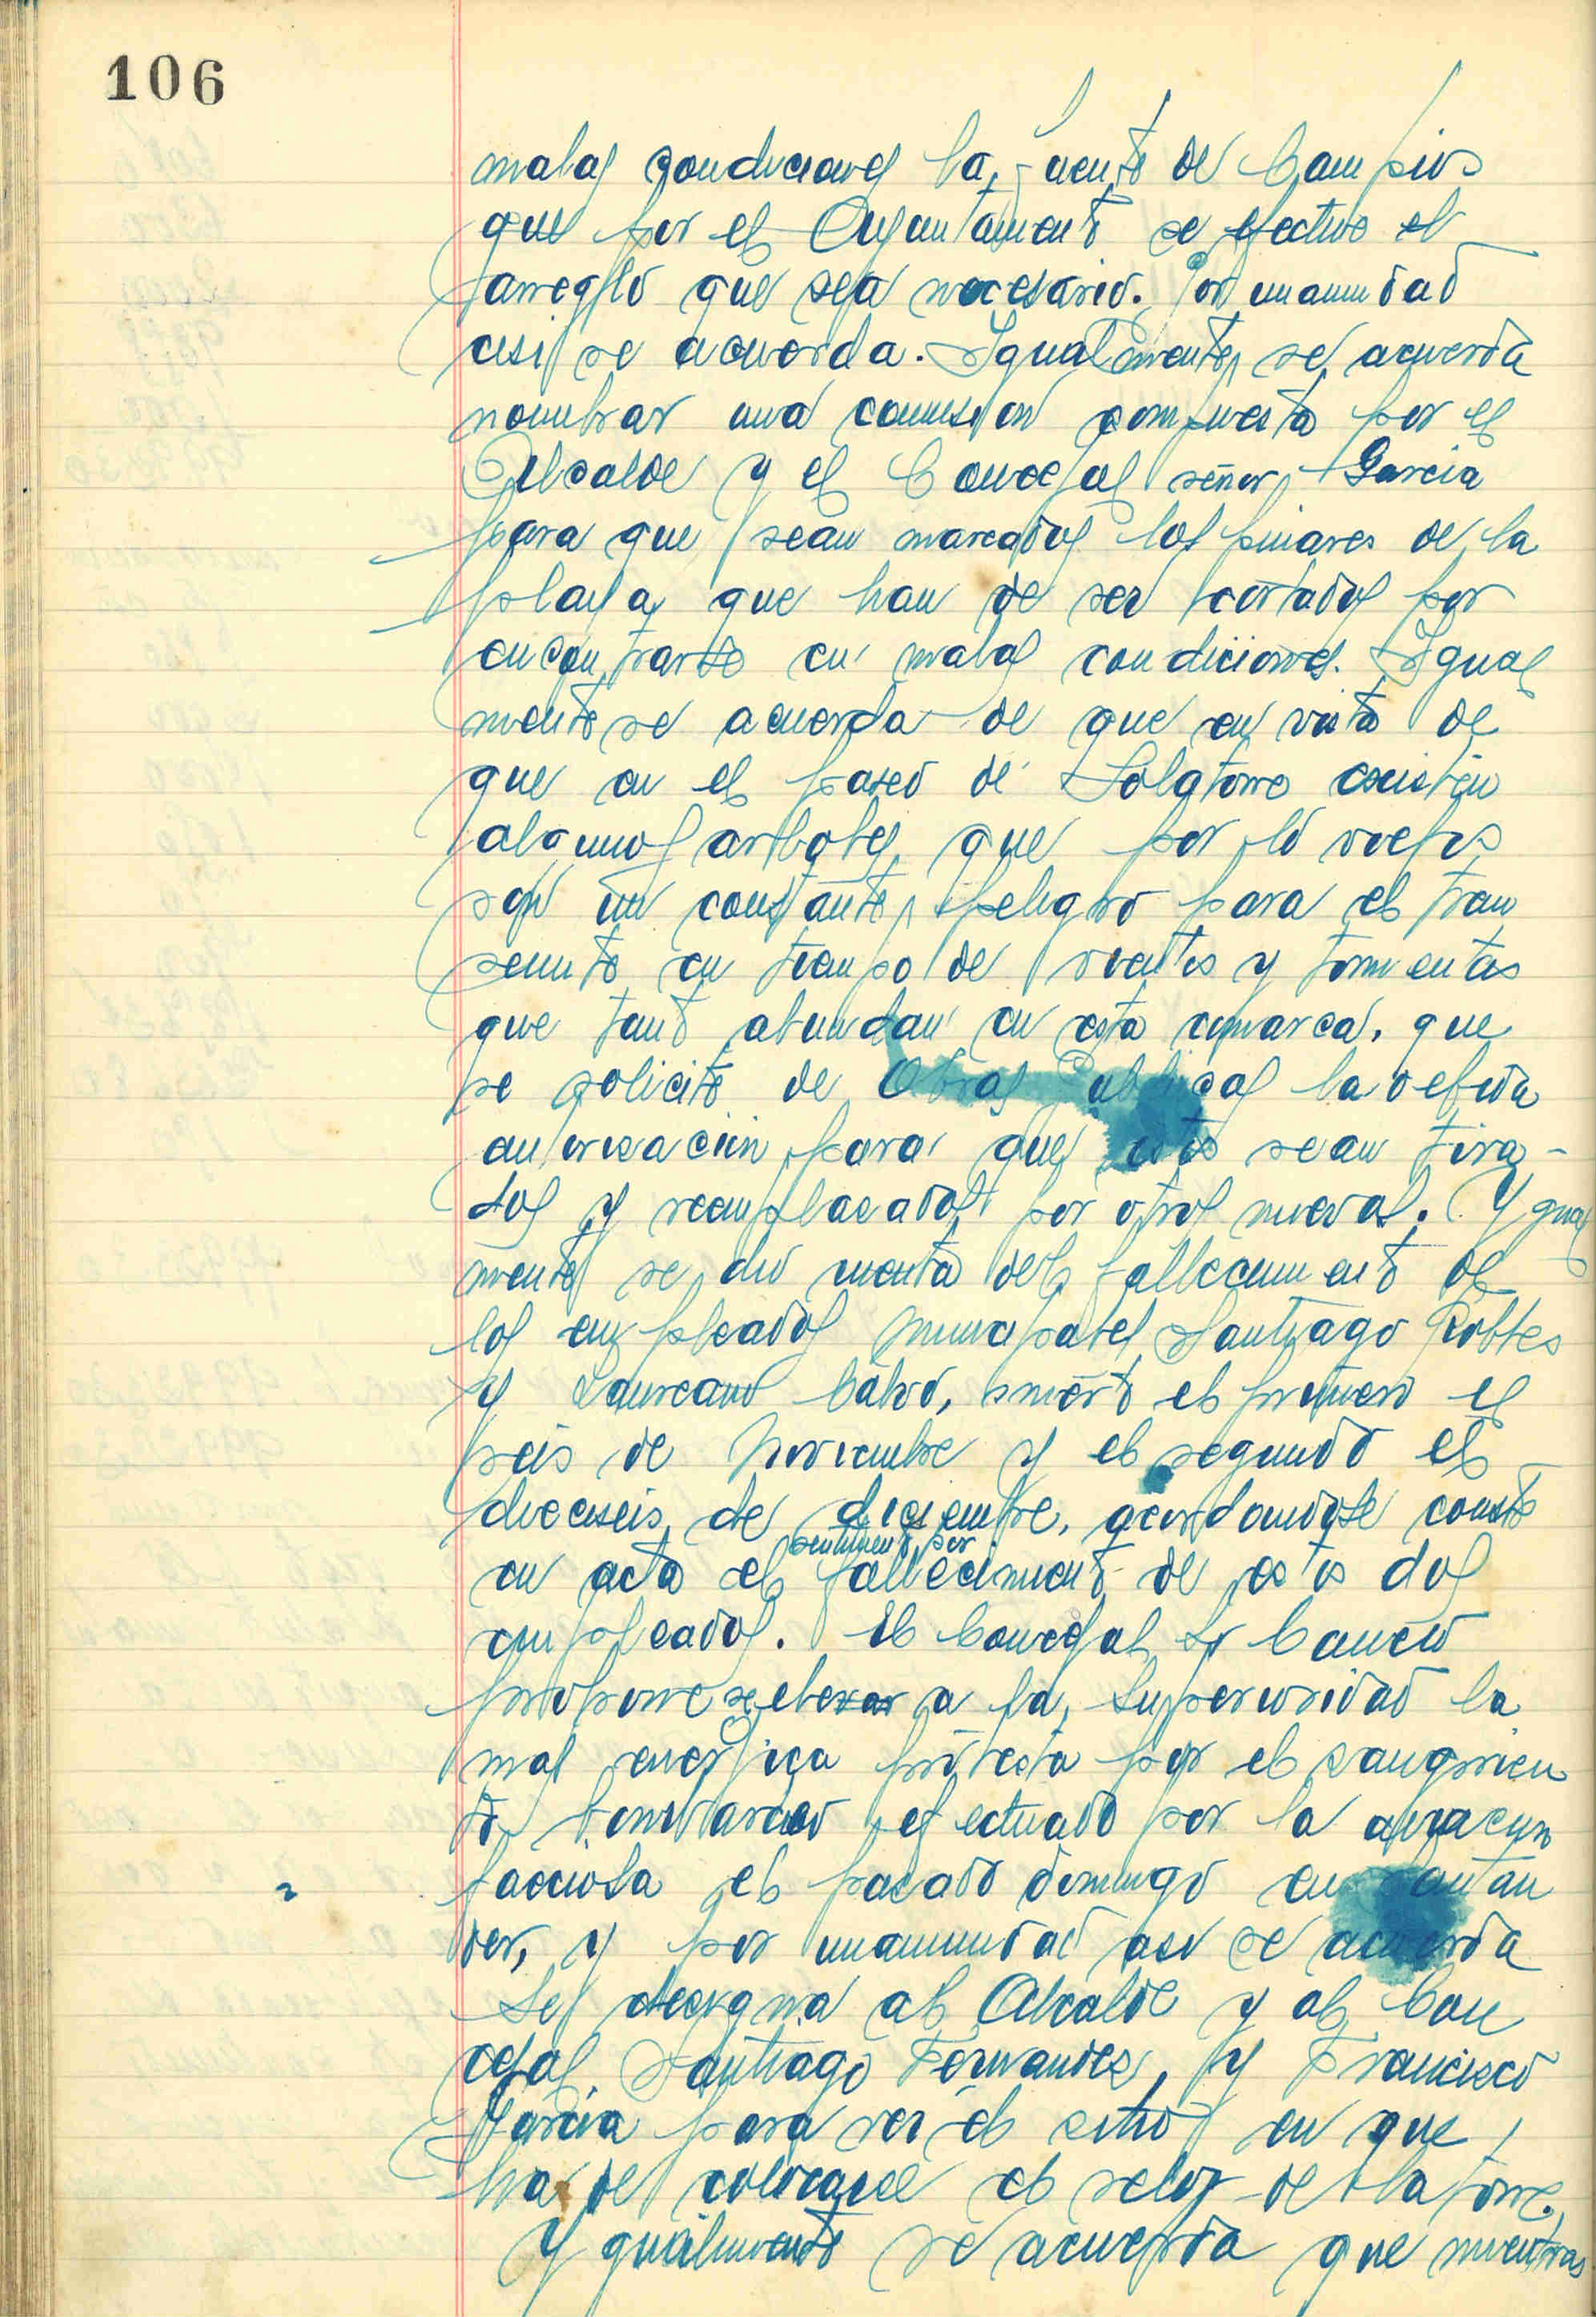 106
malas condiciones la fuente de Campios
que por el Ayuntamiento se efectue el
arreglo que sea necesario. Por unanimidad
asi se acuerda. Igualmente, se acuerda
nombrar una comision compuesta por el
Alcalde y el Concejal señor Garcia
para que sean marcados los pinares de la
playa que han de ser cortados por
encontrarse en malas condiciones. Igual
mente se acuerda de que en vista de
que en el paseo de Solatorre existen
algunos arboles que por lo viejos
son un constante peligro para el tran
seunte en tiempo de vientos y tormentas
que tanto abundan en esta comarca, que
se solicite de Obras Publicas la debida
autorisacion para que estos sean tira-
dos y reemplazados por otros nuevos. Ygual
mente se dio cuenta del fallecimiento de
los empleados municipales Santiago Robles
y Laureano Calvo, muerto el primero el
seis de Noviembre y el segundo el
dieciseis de diciembre, acordandose conste
sentimiento por
en acta el fallecimiento de estos dos
empleados. El Concejal Sr Cancio
propone se elevar a la Superioridad la
mas energica protesta por el sangrien
to bombardeo efectuado por la aviacion
facciosa el pasado domingo en Santan
der, y por unanimidad asi se acuerda
Se designa al Alcalde y al Con
cejal Santiago Fernandez, y Francisco
Garcia para ver el sitio en que
ha de colocarse el reloj de la torre.
Ygualmente se acuerda que mientras